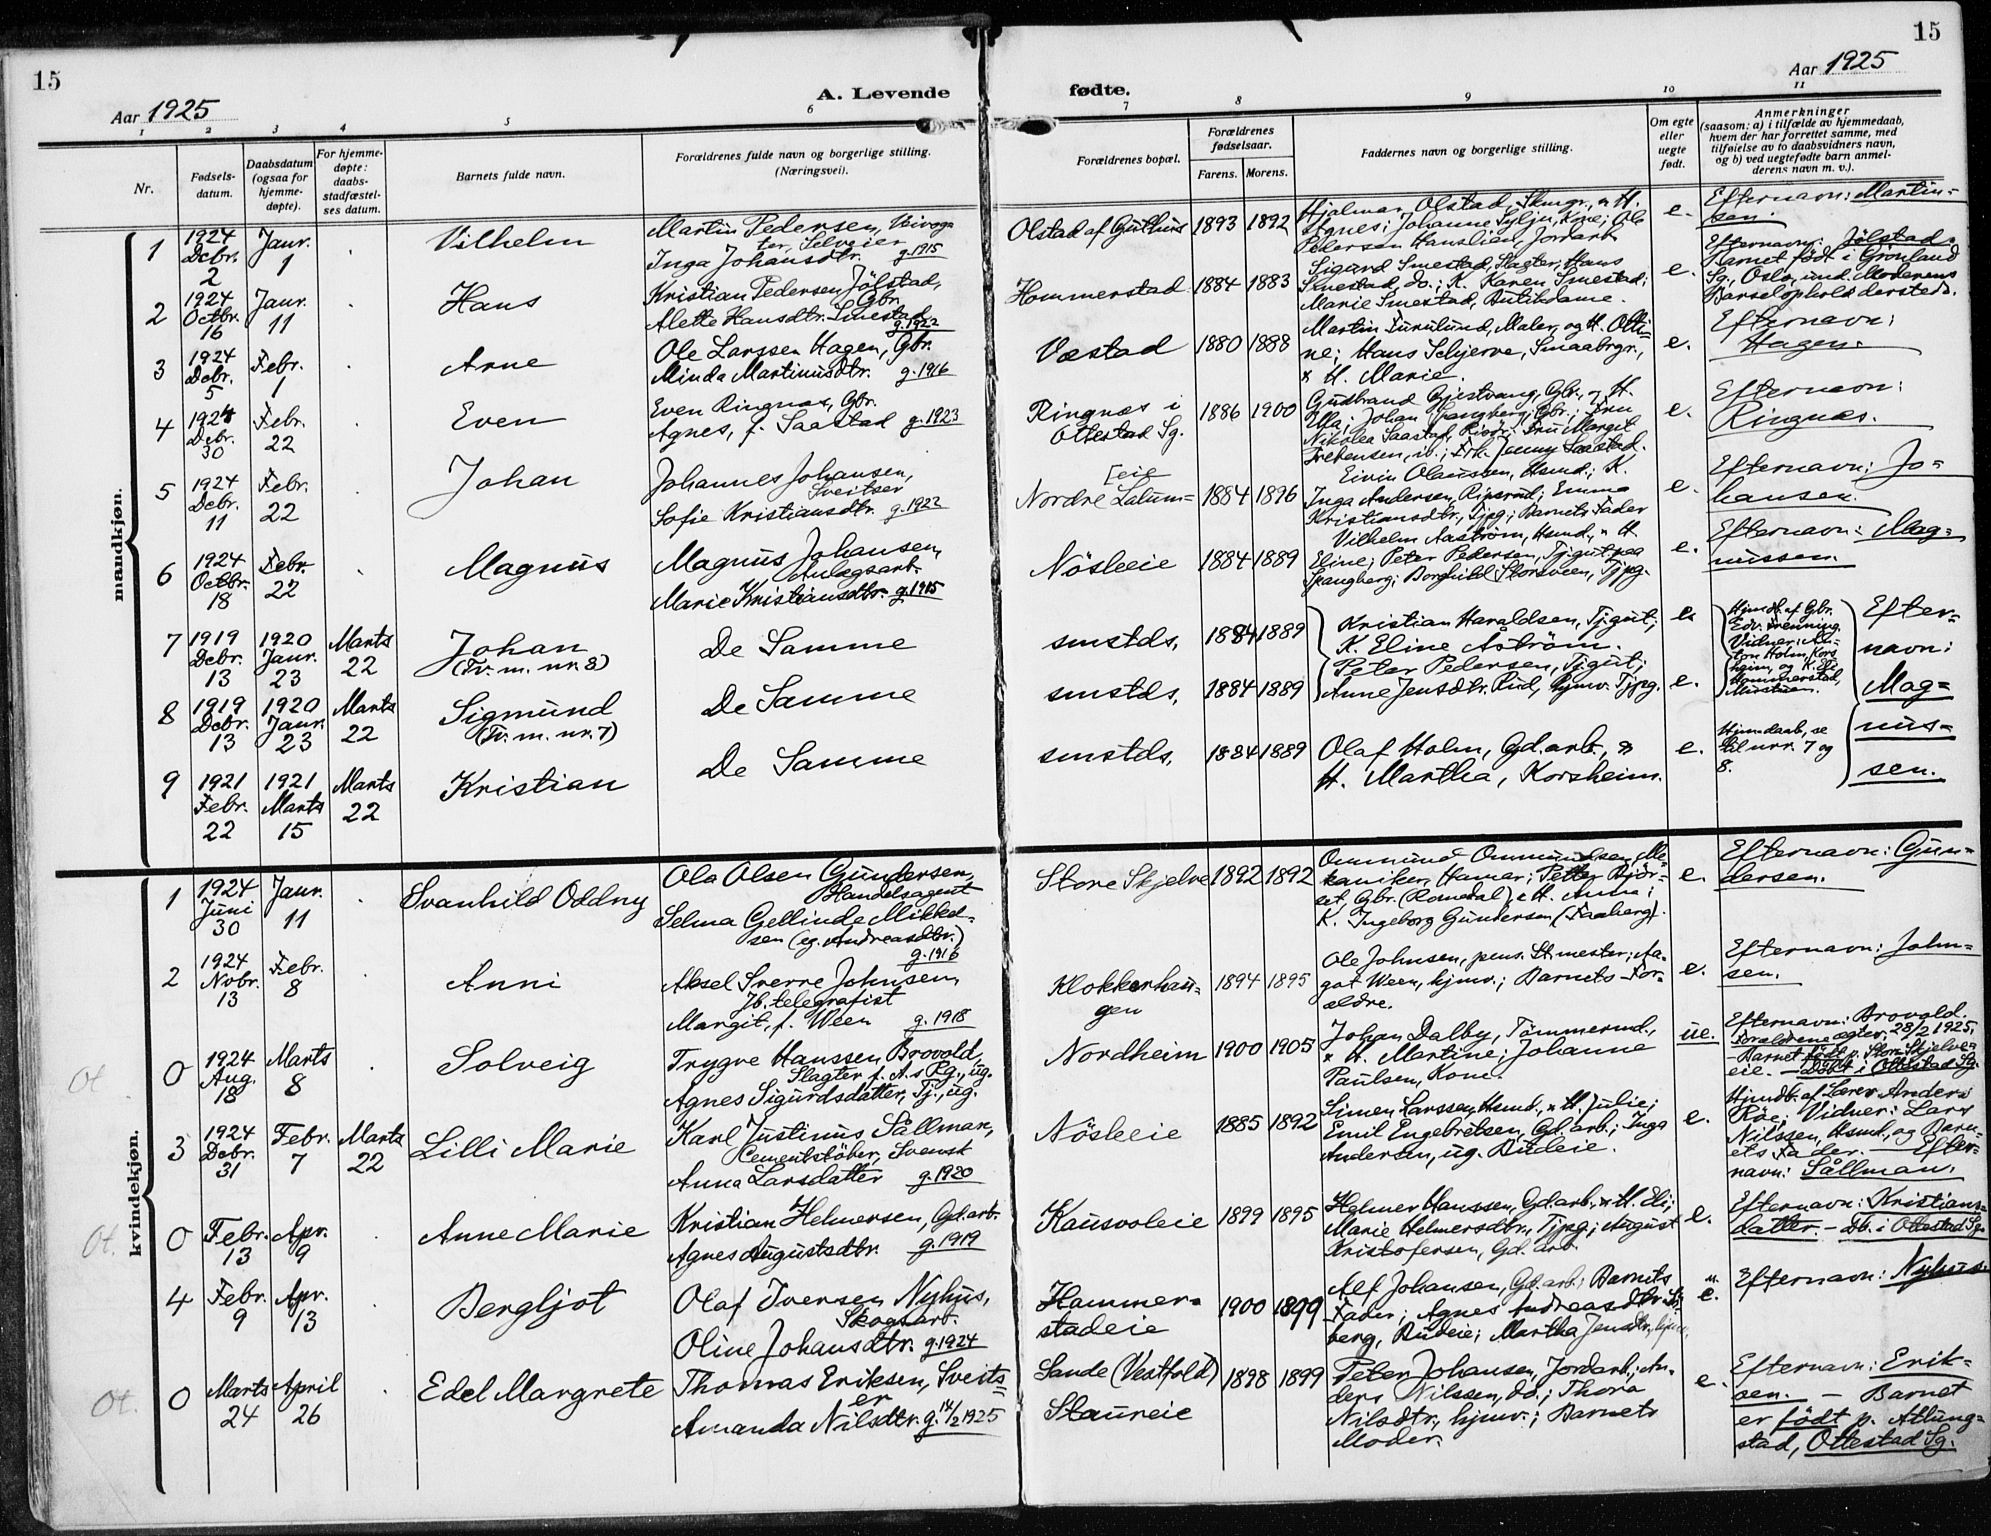 15
15
Aar 1925
A. Levende fødte.
Aar 1925
1 2 3 4 5 6 7 8 9 10 11
Nr.
Fødsels-
datum.
Daabsdatum
(ogsaa for
hjemme-
døpte).
For hjemme-
døpte:
daabs-
stadfæstel-
ses datum.
Barnets fulde navn.
Forældrenes fulde navn og borgerlige stilling.
(Næringsvei).
Forældrenes bopæl.
Forældrenes
fødselsaar.
Farens. Morens.
Faddernes navn og borgerlige stilling.
Om egte
eller
uegte
født.
Anmerkninger
(saasom: a) i tilfælde av hjemmedaab,
hvem der har forrettet samme, med
tilføielse av to daabsvidners navn,
og b) ved uegtefødte barn anmel-
derens navn m. v.).
mandkjøn.
1
1924
Debr.
2
Janr.
1
Vilhelm
Martin Pedersen,
Inga Johansdtr. g. 1915
Olstad af Guthus
1893 1892
Hjalmar Olstad, & H.
Agnes; Johanne Kone; Ole
Pedersen Hanslien, Jordarb.
e.
Efternavn: Martin-
sen.
2
1924
Octbr.
16
Janr.
11
Hans
Kristian Pedersen Jølstad,
Gbr.
Alette Hansdtr. Smestad
g. 1922
Hommerstad
1884 1883
Sigurd Smestad, Slagter; Hans
Smestad, do.; K. Karen Smestad;
Marie Smestad, Butikdame.
e.
Efternavn: Jølstad.
Barnet født i Grønland
Sg., Oslo, und. Moderens
Barselophold dersteds.
3
1924
Debr.
5
Febr.
1
Arne
Ole Larssen Hagen, Gbr.
Minda Martinusdtr. g. 1916
Væstad
1880 1888
Martin Furulund, Maler, og H. Otti-
ne; Hans Schjerve, Smaabrgr.,
& H. Marie.
e.
Efternavn:
Hagen.
4
1924
Debr.
30
Febr.
22
Even
Even Ringnæs, Gbr.
Agnes, f. Saastad g. 1923
Ringnæs i
Ottestad Sg.
1886 1900
Gudbrand Gjestvang, Gbr., & H.
Ella; Johan Spangberg, Gbr.; Fru
Nikolea Saastad, Fru Margit
Trebensen, ; Frk. Jenny Saastad.
e.
Efternavn:
Ringnæs.
5
1924
Debr.
11
Febr.
22
Johan
Johannes Johansen,
Sveitser
Sofie Kristiansdtr. g. 1922
Nordre Lalum-
[eie
1884 1896
Eivin Olaussen, Hsmd.; K.
Inga Andersen, Ripsrud; Emma
Kristiansdtr., Tjpg; Barnets Fader
e.
Efternavn: Jo-
hansen.
6
1924
Octbr.
18
Febr.
22
Magnus
Magnus Johansen,
Anlægsarb.
Marie Kristiansdtr. g. 1915
Nøsleeie
1884 1889
Vilhelm Aastrøm, Hsmd., & H.
Eline; Peter Pedersen, Tjgut paa
Spangberg; Borghild Storsveen, Tjpg.
e.
Efternavn: Mag-
nussen.
7
1919
Debr.
13
1920
Janr.
23
Marts
22
Johan
(Tv. m. nr. 8)
De Samme
smstds,
1884 1889
Kristian Haraldsen, Tjgut;
K. Eline Astrøm.
e.
Hjmdb. af Gbr.
Edv. Frenning.
Vidner: An-
ton Holm, Kors
heim, og K.
Hommerstad,
8
1919
Debr.
13
1920
Janr.
23
Marts
22
Sigmund
(Tv. m. nr. 7)
De Samme
smstds,
1884 1889
Peter Pedersen, Tjgut;
Anne Jensdtr. Rud, hjmv. Tjpg.
e.
Efter-
navn:
Mag-
nus-
sen.
9
1921
Febr.
22
1921
Marts
15
Marts
22
Kristian
De Samme
smstds,
1884 1889
Olaf Holm, Gd.arb., &
H. Martha, Korsheim.
e.
Hjmdaab, se
til nrr. 7 og
8.
kvindekjøn.
1
1924
Juni
30
Janr.
11
Svanhild Oddny
Ola Olsen Gundersen,
Handelsagent
Selma Gellinde Mikkel-
sen (eg. Andreasdtr.)
g. 1916
Store Skjelve
1892 1892
Ommund Ommundsen, Me-
kaniker, Hamar; Petter Bjør-
set, Gbr. (Romedal), & H. Anna;
K. Ingeborg Gundersen (Faaberg).
e.
Efternavn: Gun-
dersen.
2
1924
Novbr.
13
Febr.
8
Anni
Aksel Sverre Johnsen,
Jb. telegrafist
Margit, f. Ween g. 1918
Klokkerhau-
gen
1894 1895
Ole Johnsen, pens. St.mester; Aa-
got Ween, hjmv.; Barnets For-
ældre.
e.
Efternavn: John-
sen.
Ot.
0
1924
Aug.
18
Marts
8
Solveig
Trygve Hanssen Brovold,
Slagter f. A.s Pg., ug.
Agnes Sigurdsdatter, Tj., ug.
Nordheim
1900 1905
Johan Dalby, Tømmermd.,
& H. Martine; Johanne
Paulsen, Kone.
ue.
Efternavn: Brovold.
Forældrene egter. 28/2 1925.
– Barnet født p. Store Skjelve-
eie. – Døbt i Ottestad Sg.
3
1924
Debr.
31
Febr.
7
Marts
22
Lilli Marie
Karl Justinus Sållman,
Cementstøber, Svensk
Anna Larsdatter g. 1920
Nøsleeie
1885 1892
Simen Larssen, Hsmd., & H. Julie;
Emil Engebretsen, Gd.arb.; Inga
Andersen, ug. Rudeie.
e.
Hjmdb. af Lærer Anders
Røe; Vidner: Lars
Nilssen, Hsmd., og Barn-
ets Fader. – Efter-
navn: Sållman.
Ot.
0
Febr.
13
Apr.
9
Anne Marie
Kristian Helmersen, Gd.arb.
Agnes Augustsdtr. g. 1919
Kausvoleie
1899 1895
Helmer Hanssen, Gd.arb., & H. Eli;
Marie Helmersdtr., Tjpg; August
Kristofersen, Gd. arb.
e.
Efternavn: Kristians-
datter. – Db. i Ottestad Sg.
4
Febr.
9
Apr.
13
Bergljot
Olaf Iversen Nyhus,
Skogsarb.
Oline Johansdtr. g. 1924
Hammer-
stadeie
1900 1899
Alf Johansen, Gd.arb; Barnets
Fader; Agnes Andreasdtr.
berg, Rudeie; Martha Jensdtr., hjmv.
e.
Efternavn: Nyhus.
Ot.
0
Marts
24
April
26
Edel Margrete
Thomas Eriksen, Sveits-
er
Amanda Nilsdtr. g. 14/2 1925
Sande (Vestfold)
Staureie
1898 1899
Peter Johansen, Jordarb.; An-
ders Nilssen, do.; Thora
Nilsdtr., hjmv.; Barnets
Moder.
e.
Efternavn: Erik-
sen. – Barnet
er født p. Atlung-
stad, Ottestad Sg.